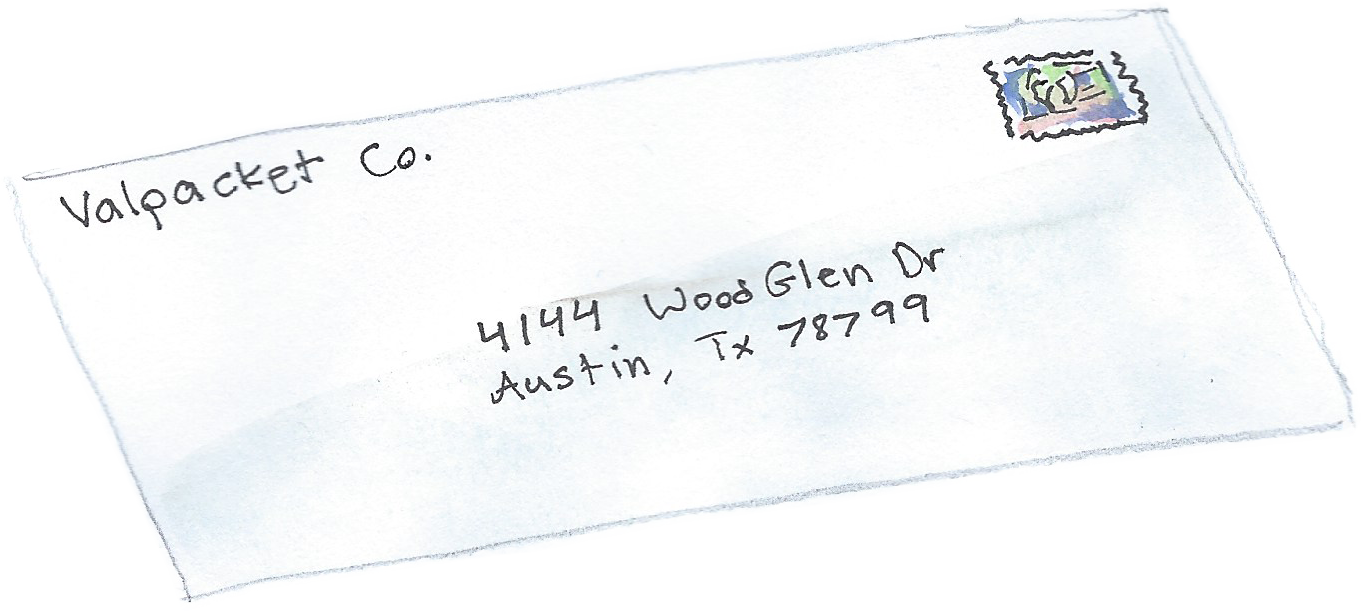 Valpacket Co.
4144 Wood Glen Dr
Austin, Tx 78799